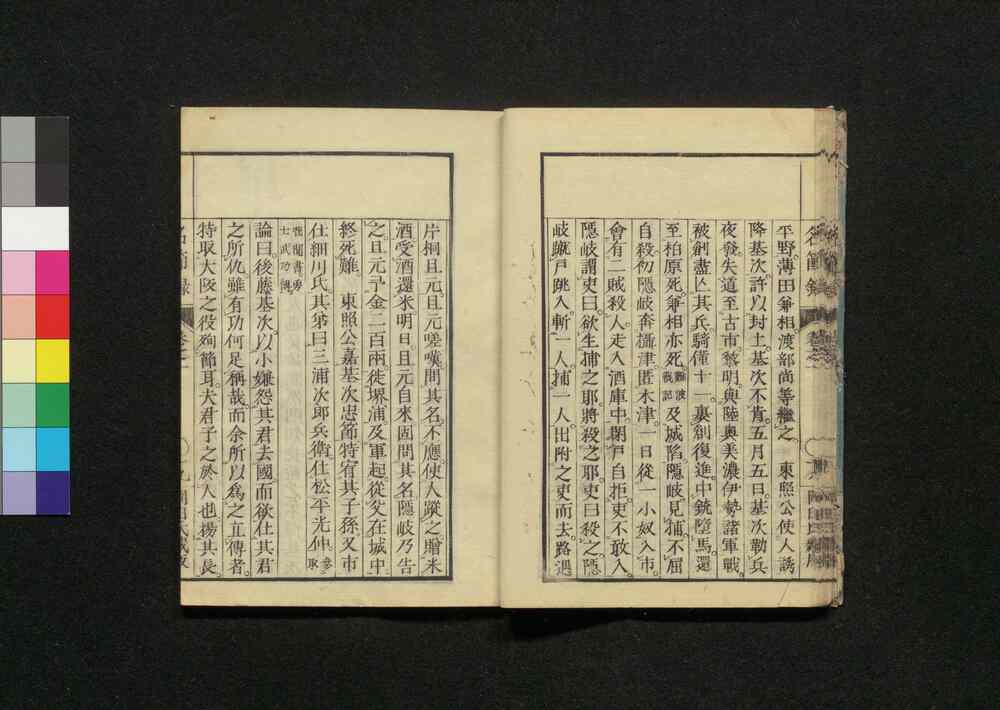 平野薄田兼相渡部尚等繼之 東照公使人誘
降基次許以封土基次不肯五月五日基次勒兵
夜發失道至古市黎明與陸奧美濃伊勢諸軍戰
被創盡亡其兵騎僅十一裹創復進中銃墮馬還
至柏原死兼相亦死難波戰記及城陷隱岐見捕不屈
自殺初隱岐奔攝津匿木津一日從一小奴入市
會有二賊殺人走入酒庫中閉戸自拒吏不敢入
隱岐謂吏曰欲生捕之耶將殺之耶吏曰殺之隱
岐蹴戸跳入斬一人捕一人出附之吏而去路遇
片桐且元且元嗟嘆問其名不應使人蹤之贈米
酒受酒還米明日且元自來固問其名隱岐乃告
之且元予金二百兩徙堺浦及軍起從父在城中
終死難 東照公嘉基次忠節特宥其子孫又市
仕細川氏其弟曰三浦次郎兵衛仕松平光仲參取
士武功傳
論曰後藤基次以小嫌怨其君去國而欲仕其君
之所仇雖有功何足稱哉而余所以爲之立傳者
特取大阪之役殉節耳夫君子之於人也揚其長